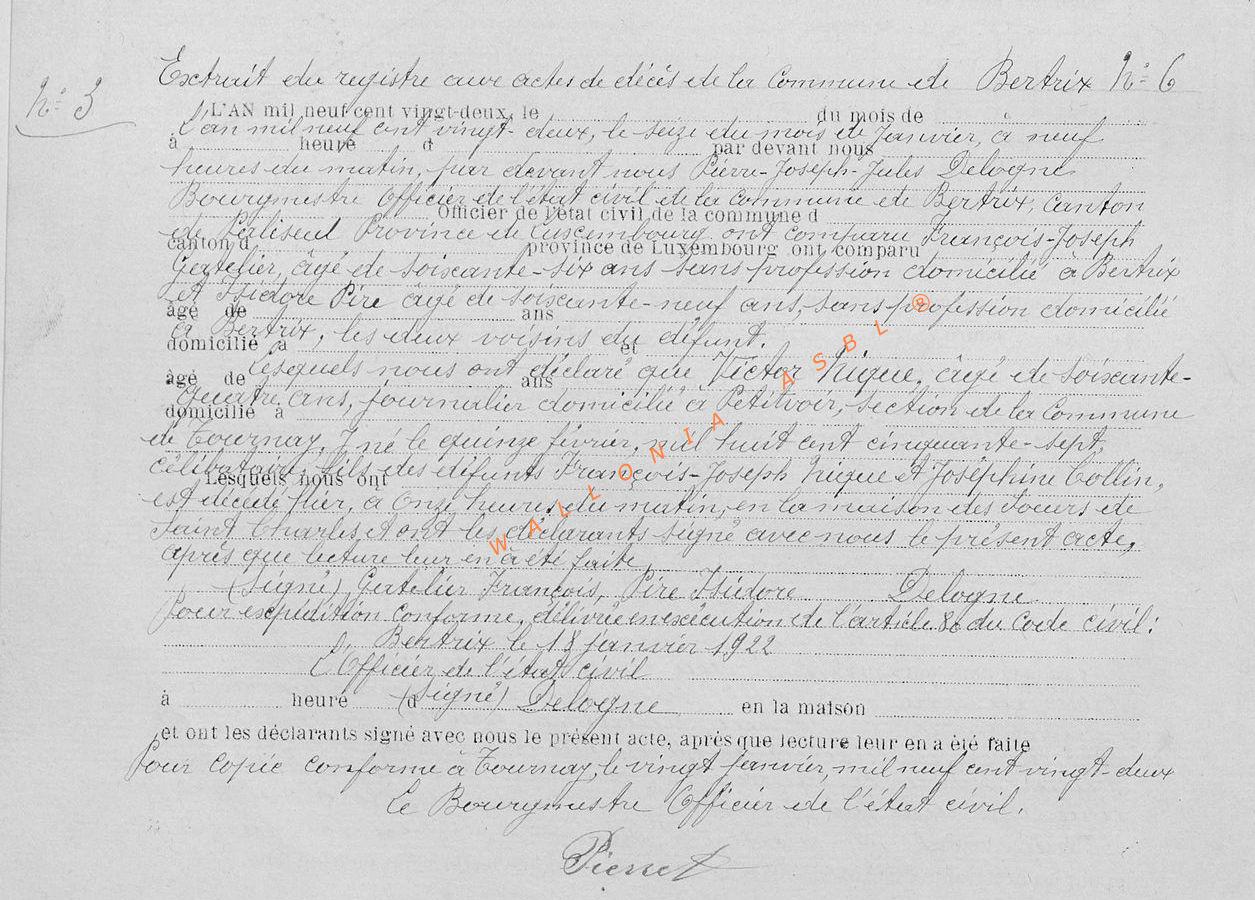 Extrait du registre aux actes de décès de la Commune de Bertrix N° 6
N° 3
L'AN mil neuf cent vingt-deux, le du mois de
L'an mil neuf cent vingt-deux, le seize du mois de Janvier, à neuf
à heure d par devant nous
heures du matin, par devant nous Pierre-Joseph-Jules Delogne
Bourgmestre Officier de l'état civil de la Commune de Bertrix, Canton
Officier de l'état civil de la commune d
de Paliseul Province de Luxembourg ont comparu François-Joseph
canton d province de Luxembourg ont comparu
Gertelier, âgé de soixante-six ans sans profession domicilié à Bertrix
et Isidore Pire âgé de soixante-neuf ans, sans profession domicilié
âgé de ans
à Bertrix, les deux voisins du défunt.
domicilié à et
Lesquels nous ont déclaré que Victor Nique, âgé de soixante-
âgé de ans
quatre ans, journalier domicilié à Petitvoir, section de la Commune
domicilié à
de Tournay, né le quinze février, mil huit cent cinquante-sept,
célibataire, fils des défunts François-Joseph Nique et Joséphine Collin,
Lesquels nous ont
est décédé hier, à onze heures du matin, en la maison des Soeurs de
Saint Charles, et ont les déclarants signé avec nous le présent acte,
après que lecture leur en a été faite,
(Signé) Gertelier François, Pire Isidore Delogne
Pour expédition conforme, délivrée en exécution de l'article 80 du Code civil:
Bertrix le 18 janvier 1922
L'Officier de l'état civil
à heure d (signé) Delogne en la maison
et ont les déclarants signé avec nous le présent acte, après que lecture leur en a été faite
Pour copie conforme à Tournay, le vingt janvier, mil neuf cent vingt-deux
Le Bourgmestre Officier de l'état civil.
Pierret
WALLONIA ASBL ®